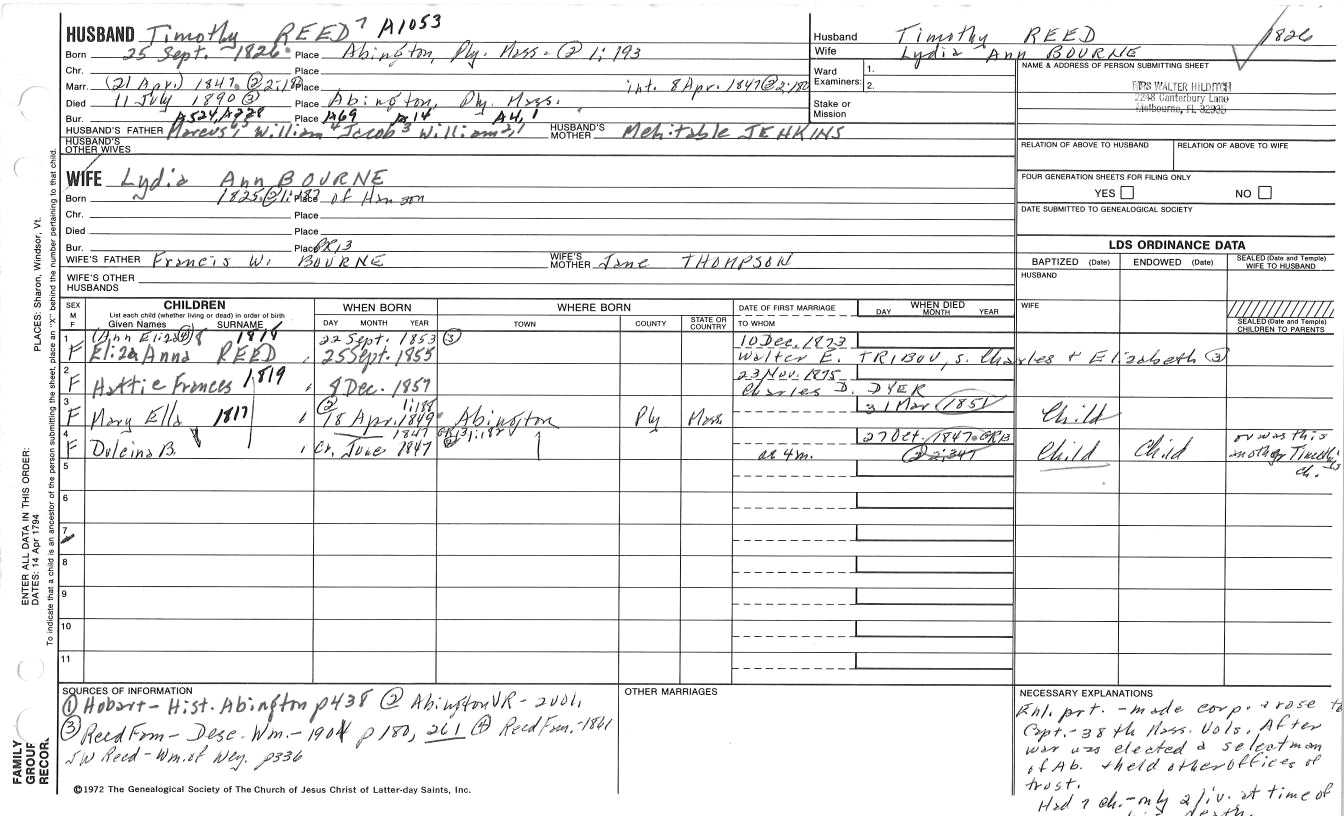 HUSBAND Timothy REED 7 A1053
Born 25 Sept. 1826 Place Abington, Ply. Mass. ② 1; 193
Chr. Place
Marr. (21 Apr.) 1847. ② 2:180 Place int. 8 Apr. 1847 ② 2:180
Died 11 July 1890 ③ Place Abington, Ply. Mass.
Bur. A524, A228 A69 A14 A4, 1
HUSBAND'S FATHER Marcus William 4 Jacob 3 William 2,1 HUSBAND'S MOTHER Mehitable JENKINS
HUSBAND'S OTHER WIVES
WIFE Lydia Ann BOURNE
Born 1825. ② 1: Place of Hanson
Chr. Place
Died Place
Bur. Place GR13
WIFE'S FATHER Francis W. BOURNE WIFE'S MOTHER Jane THOMPSON
WIFE'S OTHER HUSBANDS
Husband Timothy REED 1826
Wife Lydia Ann BOURNE
Ward Examiners: 1. 2.
Stake or Mission
NAME & ADDRESS OF PERSON SUBMITTING SHEET
MRS WALTER HILDITCH
2248 Canterbury Lane
Melbourne, FL 32935
RELATION OF ABOVE TO HUSBAND RELATION OF ABOVE TO WIFE
FOUR GENERATION SHEETS FOR FILING ONLY
YES NO
DATE SUBMITTED TO GENEALOGICAL SOCIETY
LDS ORDINANCE DATA
BAPTIZED (Date) ENDOWED (Date) SEALED (Date and Temple) WIFE TO HUSBAND
HUSBAND
WIFE
SEALED (Date and Temple) CHILDREN TO PARENTS
SEX M F CHILDREN List each child (whether living or dead) in order of birth Given Names SURNAME WHEN BORN DAY MONTH YEAR WHERE BORN TOWN COUNTY STATE OR COUNTRY DATE OF FIRST MARRIAGE TO WHOM WHEN DIED DAY MONTH YEAR
1 (Ann Eliza ④) 8 1818 22 Sept. 1853 ③ 10 Dec. 1873
F Eliza Anna REED 25 Sept. 1855 Walter E. TRIBOU, s. Charles + Elizabeth ③
2 1819 23 Nov. 1875
F Hattie Frances 8 Dec. 1857 Charles D. DYER
3 ② 1:188 31 Mar 1851
F Mary Ella 1817 18 Apr. 1849 Abington Ply Mass Child
4 1847 GR13 1:182 27 Oct. 1847 GR13 or was this
F Dulcina B. Cr. June 1847 ae 4m. ② 2:347 Child Child mother Timothy's ch.
5
6
7
8
9
10
11
SOURCES OF INFORMATION
① Hobart - Hist. Abington p438 ② Abington VR - 2vol.
③ Reed Fam - Desc. Wm. - 1904 p 180, 261 ④ Reed Fam. - 1861
JW Reed - Wm. of Wey. p336
OTHER MARRIAGES
NECESSARY EXPLANATIONS
Enl. prt. - made corp. & rose to
Capt. - 38th Mass. Vols. After
war was elected a selectman
of Ab. & held other offices of
trust.
Had ? ch. - only 2 liv. at time of
©1972 The Genealogical Society of The Church of Jesus Christ of Latter-day Saints, Inc.
FAMILY GROUP RECOR.
ENTER ALL DATA IN THIS ORDER:
DATES: 14 Apr 1794
PLACES: Sharon, Windsor, Vt.
To indicate that a child is an ancestor of the person submitting the sheet, place an "X" behind the number pertaining to that child.